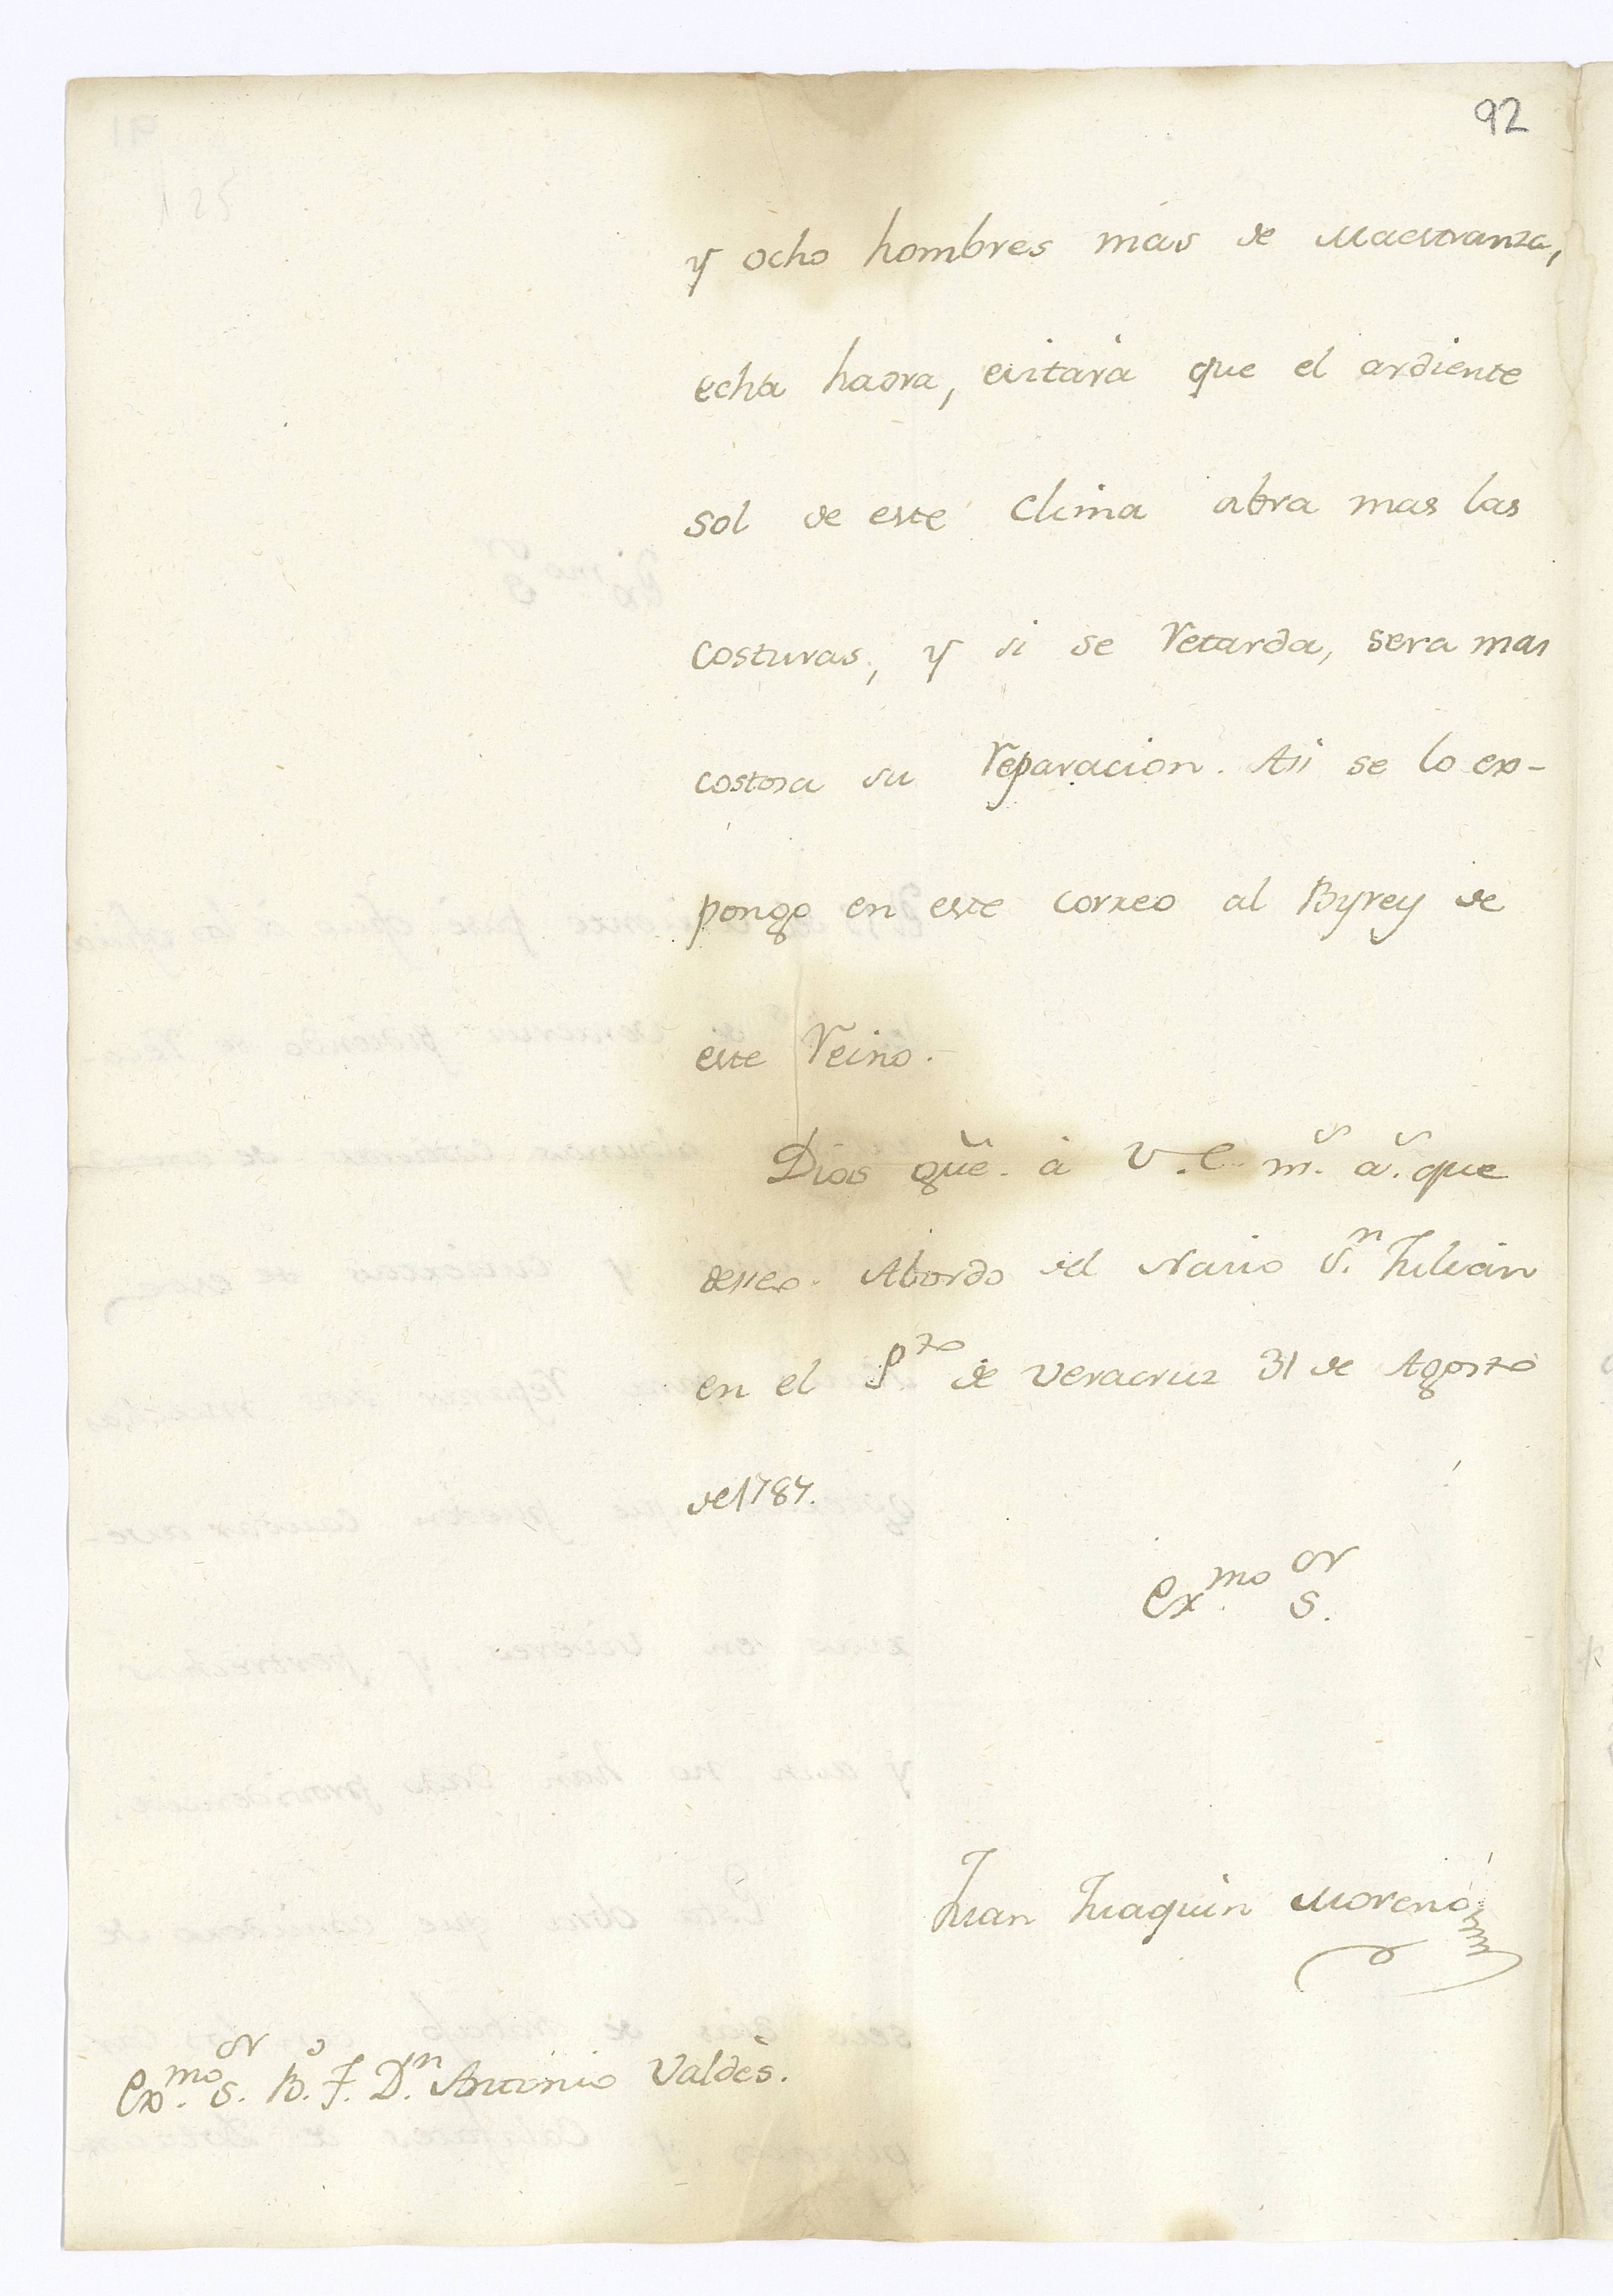 92
y ocho hombres mas de Maestranza,
echa haora, evitarà que el ardiente
sol de este Clima abra mas las
costuras, y si se retarda, sera mas
costosa su reparacion. Asi se lo ex-
pongo en este correo al Byrey de
este reino.
Dios gũe. à V.E. m.s a.s que
deseo. Abordo del Navio S.n Julian
en el P.to de Veracruz 31 de Agosto
de 1787.
Ex.mo S.or
Juan Juaquin Moreno
Ex.mo S.or B.o F. D.n Antonio Valdès.